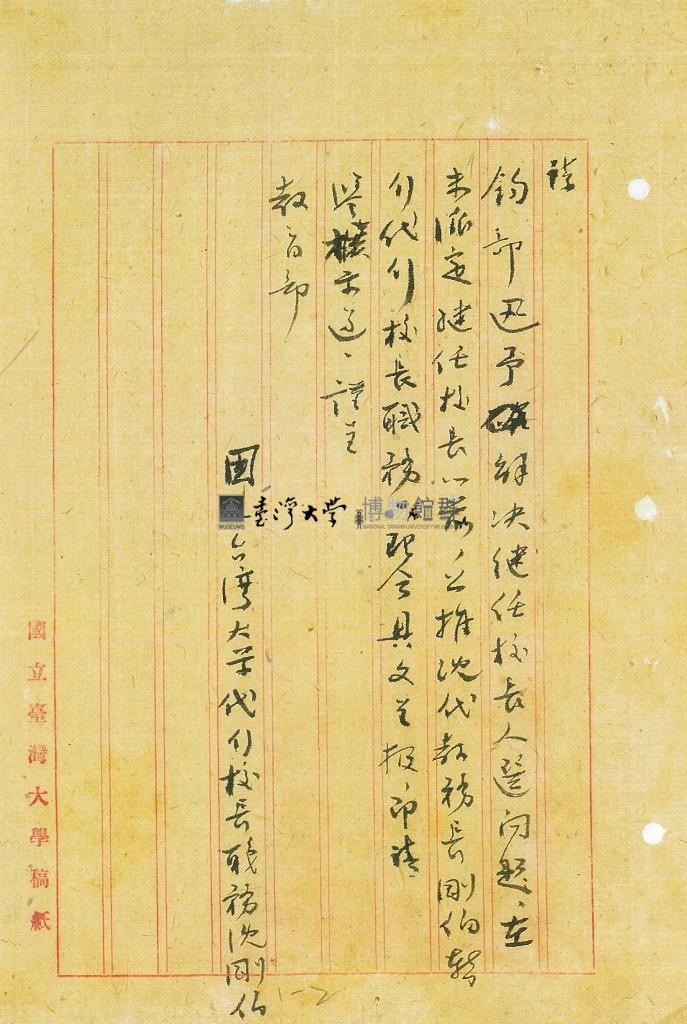 請
鈞部迅予解決繼任校長人選问题、在
未派定继任校长以前、公推沈代教務長剛伯暂
行代行校长職務、理合具文呈报、即请
鑒核示遵、謹呈
教育部
國立台灣大学代行校長職務沈剛伯
1-2
國立臺灣大學稿紙
臺灣大学
博物館群
MUSEUMS
NATIONAL TAIWAN UNIVERSITY MUSEUMS